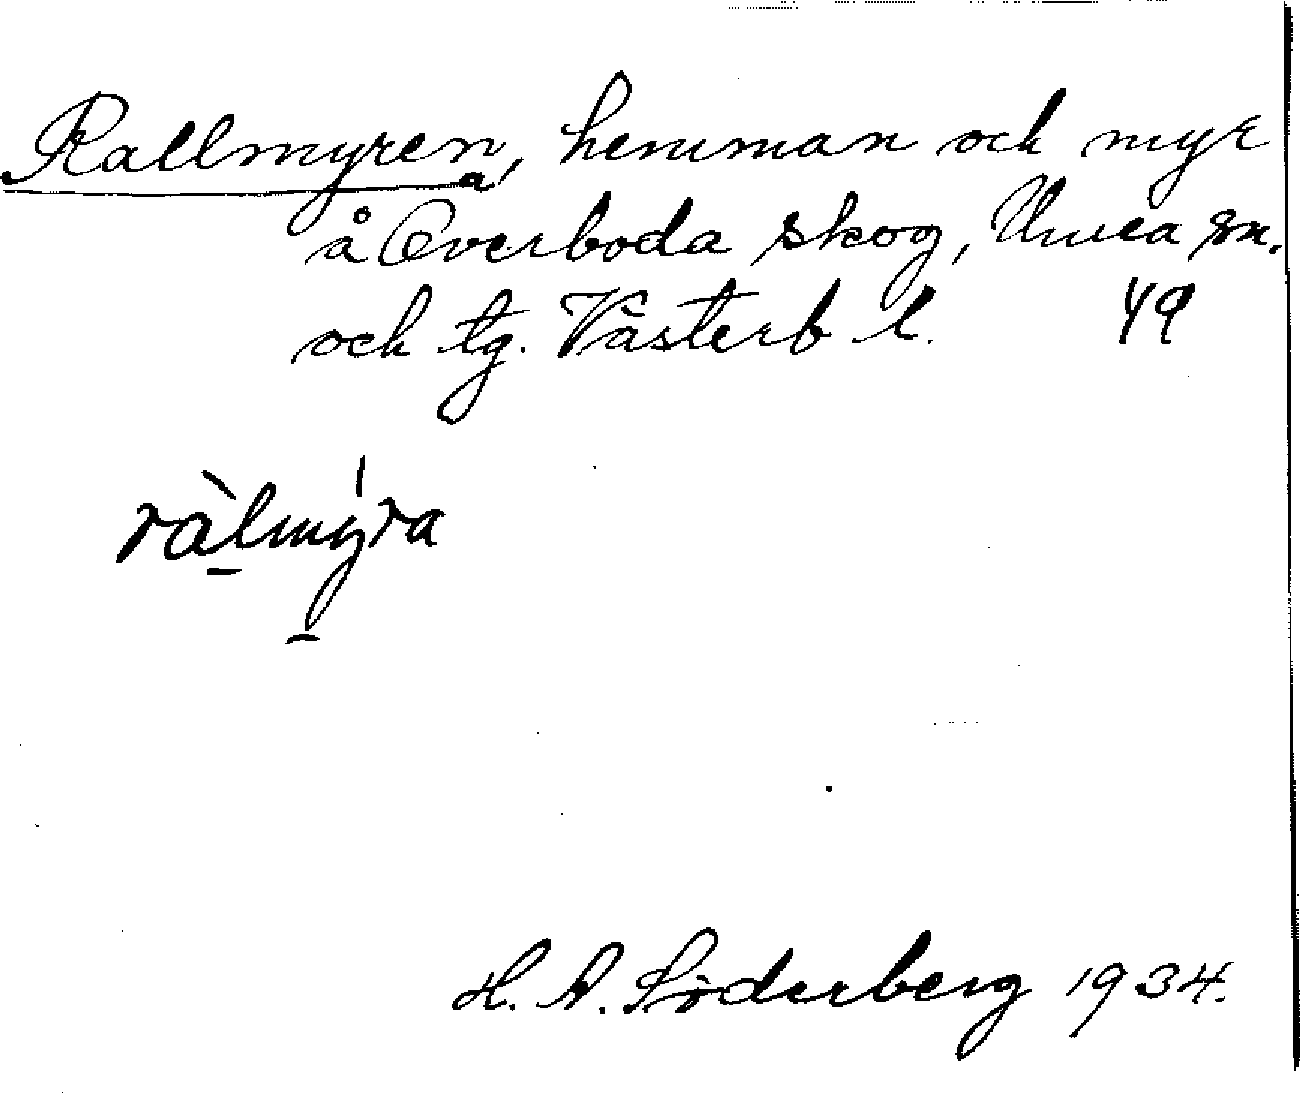 Rallmyren, hemman och myr
a
å Överboda skog, Umeå sn.
och tg. Västerb l. 49
ràlmýra
H. A. Söderberg 1934.